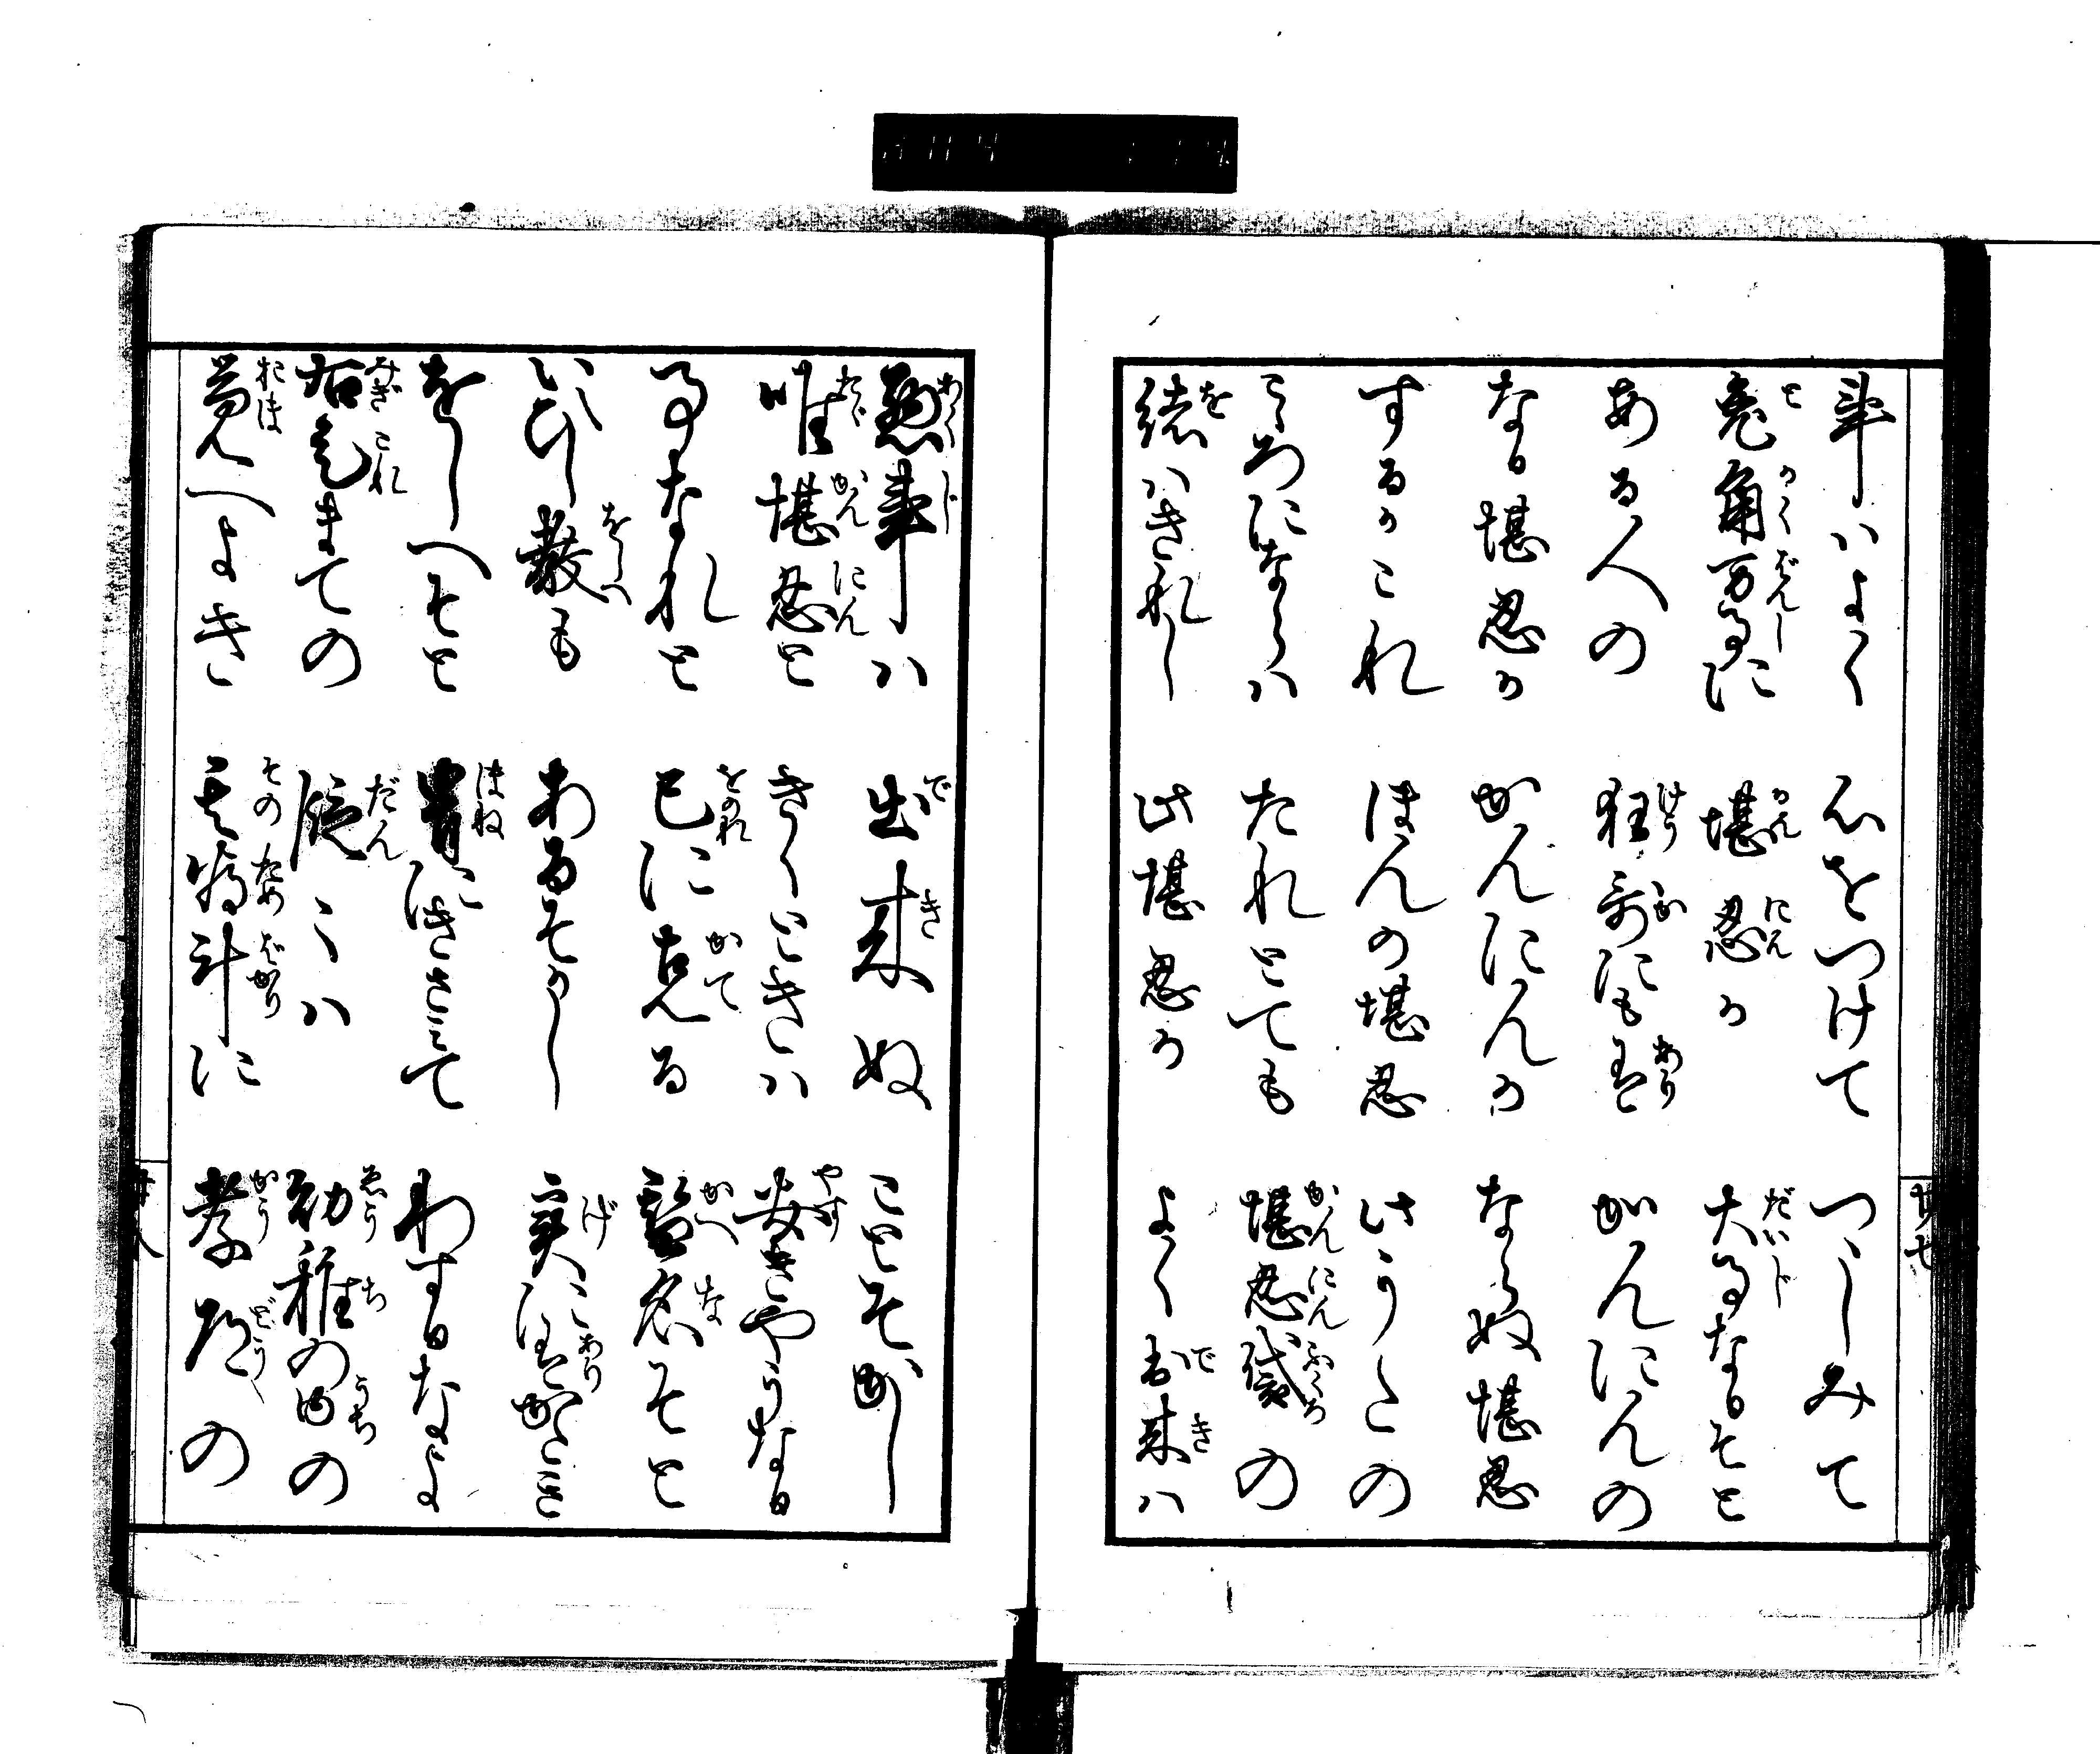 廿七
事ハよく 心をつけて つゝしみて
兎角万事に 堪忍か 大事なるそと
ある人の 狂哥にも有 かんにんの
なる堪忍か かんにんか ならぬ堪忍
するかこれ ほんの堪忍 此うたの
こゝろにならハ たれとても 堪忍袋の
緒ハきれし 此堪忍か よく出来ハ
悪事ハ 出来ぬ ことそかし
唯堪忍と きくときハ 安きやうなる
事なれと 己に克る 替名そと
いひし教も あるそかし 実に有かたき
をしへそと 骨にきさみて わするなよ
右是まての 段々ハ 幼稚の内の
覚へよき 其為斗に 孝道の